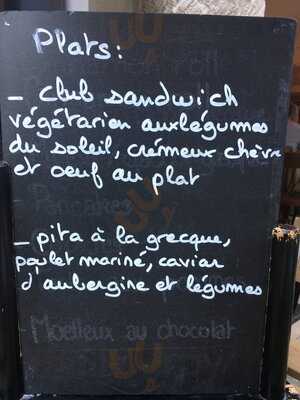 Plats:
- club sandwich
végétarien aux légumes
du soleil, crémeux chèvre
et oeuf au plat
- pita à la grecque,
poulet mariné, caviar
d'aubergine et légumes
Moelleux au chocolat